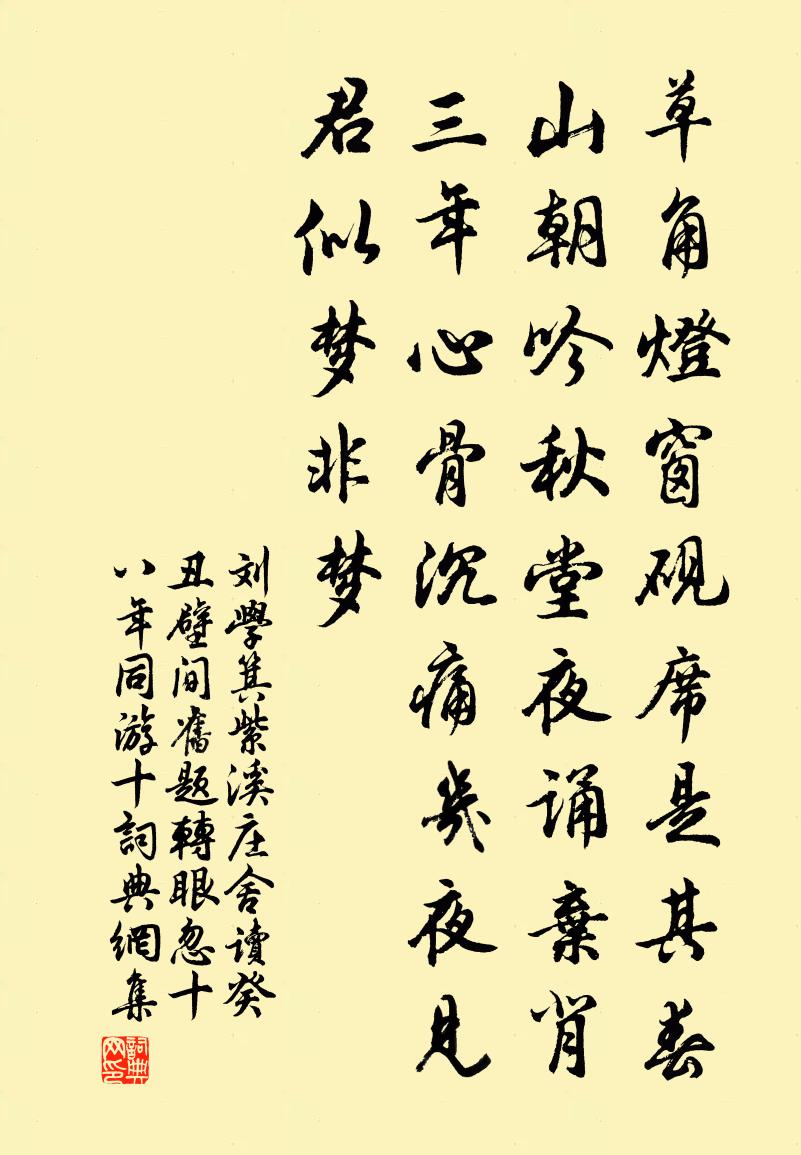 草角燈窗硯席是其春
山朝吟秋堂夜诵棄背
三年心骨沉痛幾夜見
君似梦非梦
刘學箕紫溪庄舍读癸
丑壁间舊题轉眼忽十
八年同游十詞典網集
詞典网印